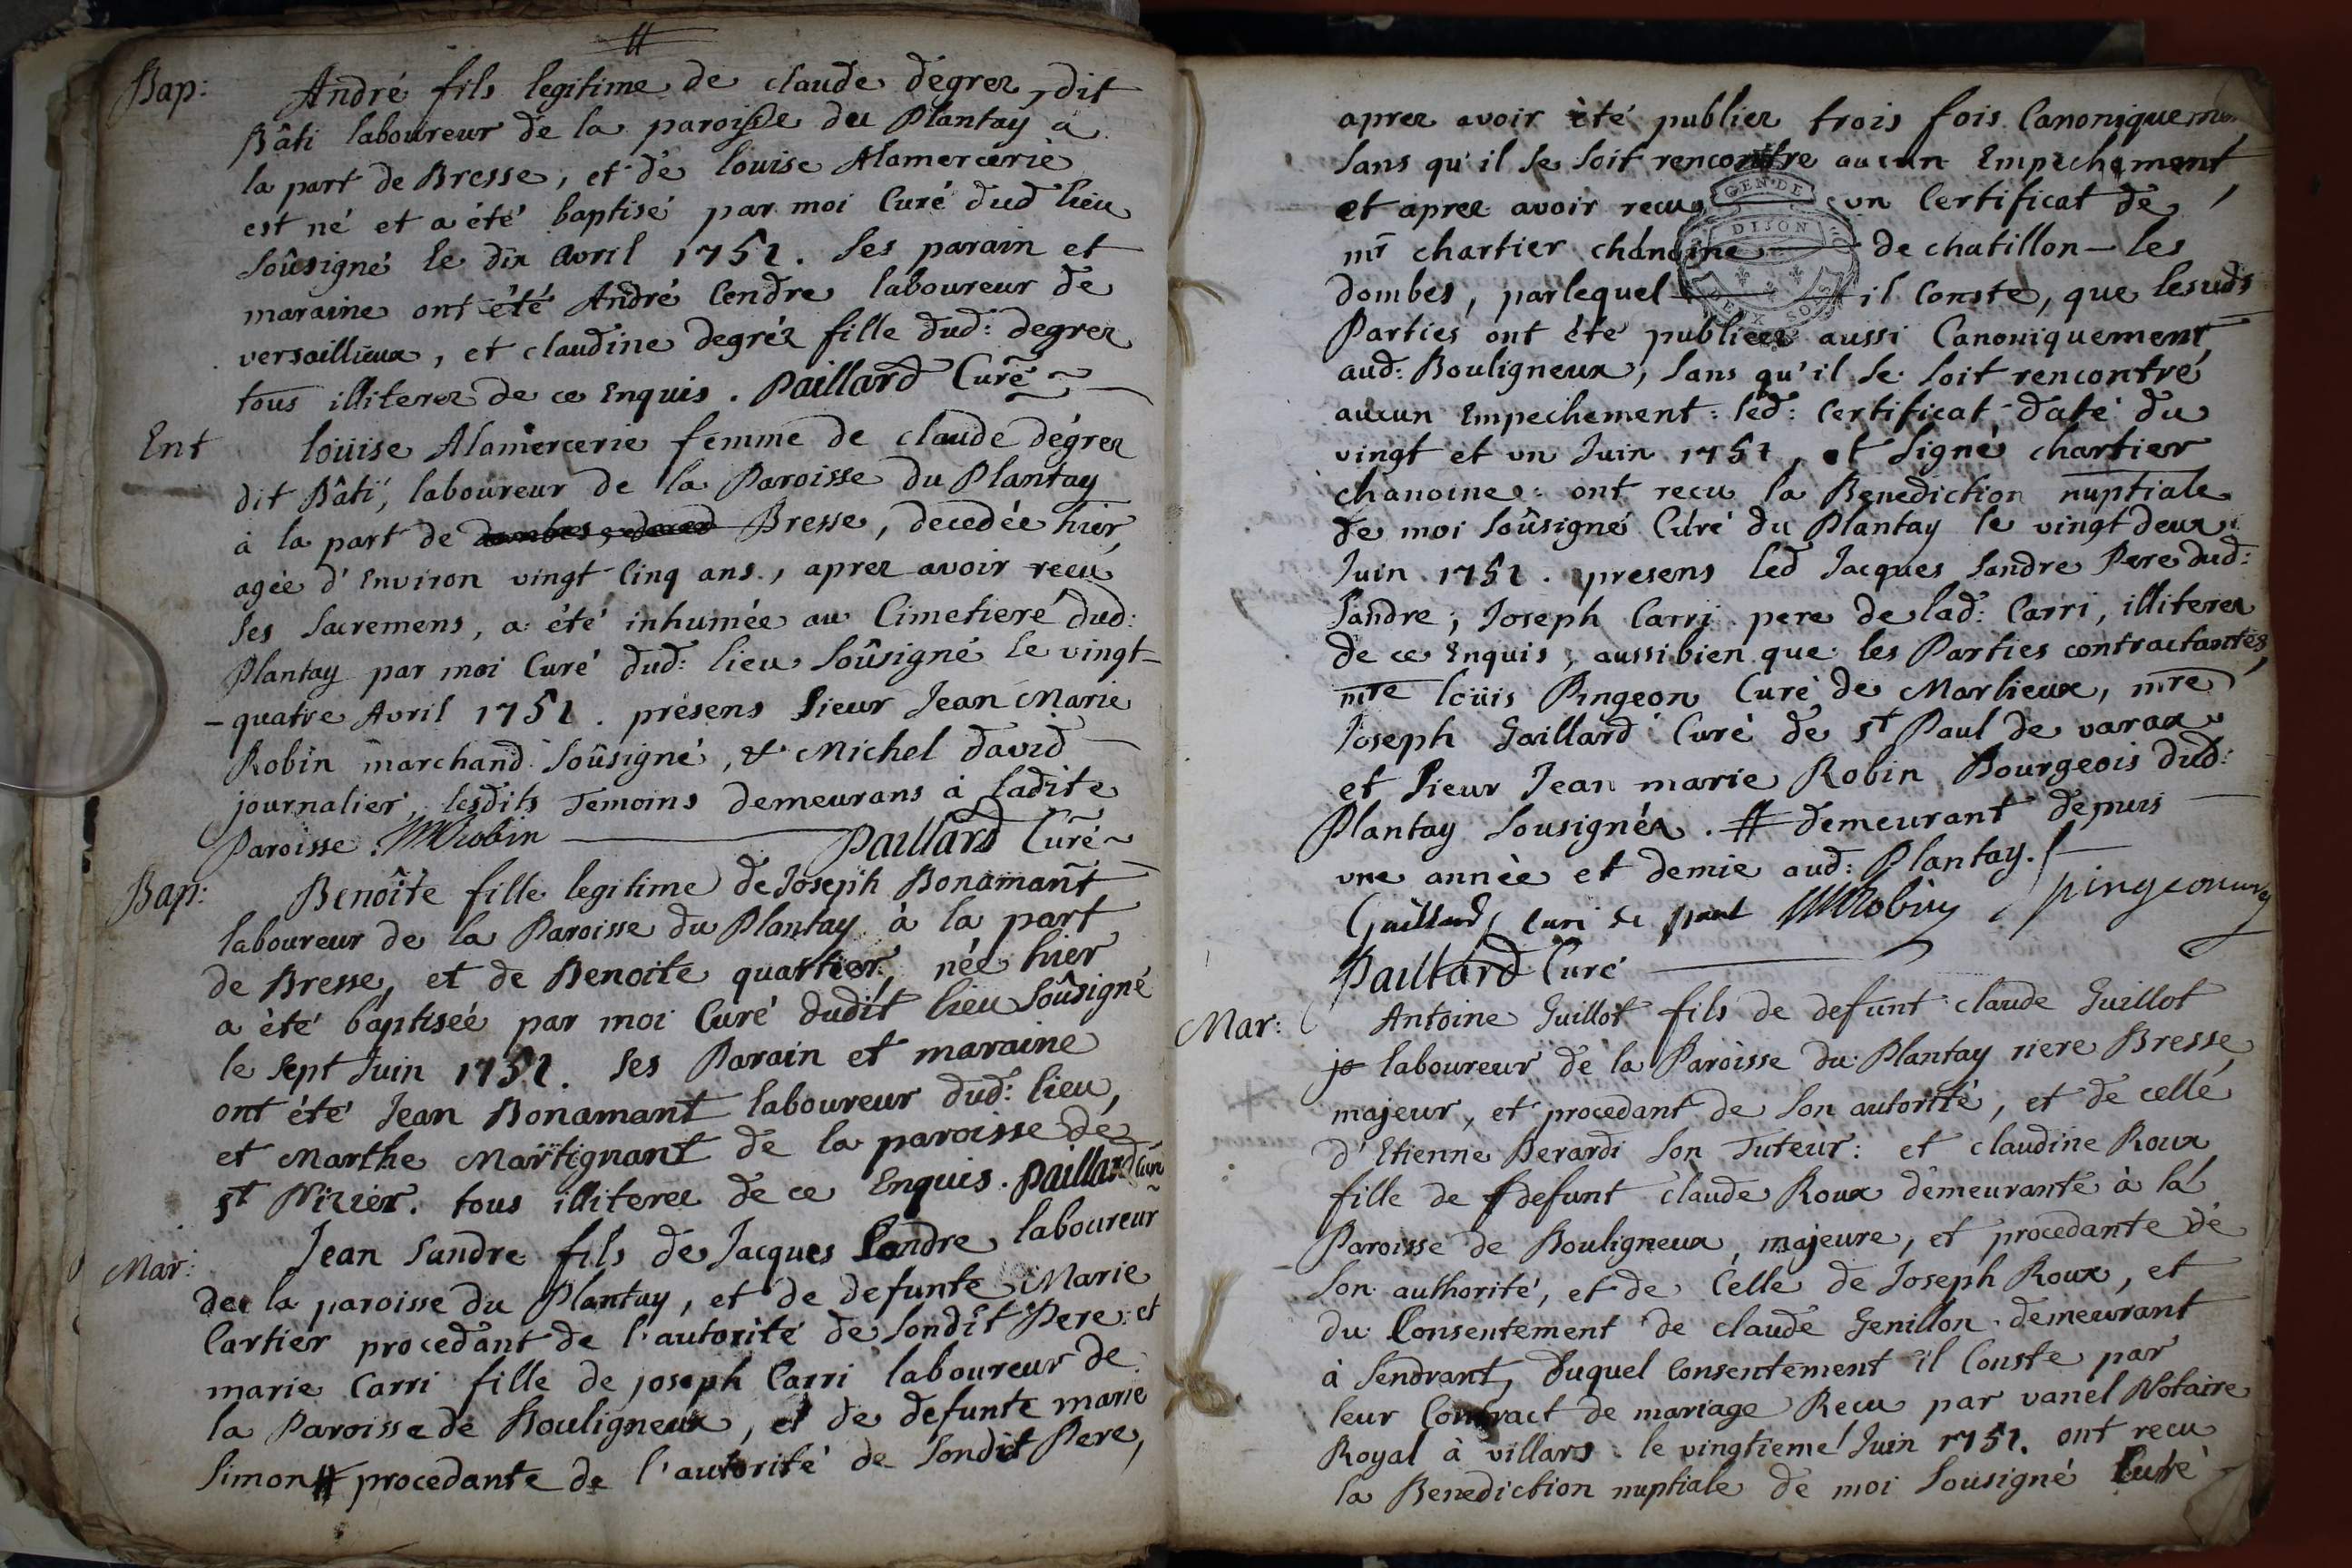 Bap: André fils legitime de claude dégrez, dit
Bâti laboureur de la paroisse du Plantay a
la part de Bresse, et de louise Alamercerie
est né et a été baptisé par moi Curé dud lieu
soûsigné le dix avril 1751. ses parain et
maraine ont été André Cendre laboureur de
versaillieux, et claudine degréz fille dud: degrez
tous illiterez de ce Enquis. Paillard Curé
Ent loüise Alamercerie femme de claude dégrez
dit Bâti, laboureur de la Paroisse du Plantay
à la part de Bresse, decedée hier,
agée d'Environ vingt Cinq ans, aprez avoir recu
ses sacremens, a été inhumée au Cimetiere dud:
Plantay par moi Curé dud: lieu soûsigné le vingt-
-quatre Avril 1751. présens sieur Jean Marie
Robin marchand soûsigné, & Michel david
journalier, lesdits Temoins demeurans à ladite
Paroisse. JMRobin Paillard Curé
Bap: Benoîte fille legitime de Joseph Bonamant
laboureur de la Paroisse du Plantay à la part
de Bresse, et de Benoite quartier, née hier
a été baptiseé par moi Curé dudit lieu soûsigné
le sept Juin 1751. ses Parain et maraine
ont été Jean Bonamant laboureur dud: lieu,
et Marthe Martignant de la paroisse de
st Nizier. tous illiterez de ce Enquis. Paillard Curé
Mar: Jean sandre fils de Jacques sandre laboureur
de la paroisse du Plantay, et de defunte Marie
Cartier procedant de l'autorité de sondit Pere: et
marie Carri fille de joseph Carri laboureur de
la Paroisse de Bouligneux, et de defunte marie
simon # procedante de l'autorité de sondit Pere,
aprez avoir été publiez trois fois Canoniquement
sans qu'il se soit rencontre aucun Empechement
et aprez avoir recu un Certificat de
GEN DE
DIJON
DEUX SOLS
mr chartier chanoine de chatillon-les
dombes, parlequel il Conste, que lesuds
Parties ont été publieez aussi Canoniquement
aud: Bouligneux, sans qu'il se soit rencontré
aucun Empechement: led: Certificat daté du
vingt et un Juin 1751, et signé chartier
chanoine: ont recu la Benediction nuptiale
de moi soûsigné Curé du Plantay le vingt deux
Juin 1751. presens led Jacques sandre Pere dud:
sandre; Joseph Carri pere de lad: Carri, illiterez
de ce Enquis, aussi bien que les Parties contractantes,
mre loüis Pingeon Curé de Marlieux, mre
Joseph Gaillard Curé de st Paul de varax
et sieur Jean marie Robin Bourgeois dud:
Plantay sousignéz. # demeurant depuis
une année et demie aud: Plantay.
Gaillard Curé de st paul JMRobin pingeon curé
Paillard Curé
Mar: Antoine Guillot fils de defunt claude Guillot
jo laboureur de la Paroisse du Plantay riere Bresse
majeur, et procedant de son autorité, et de celle
d'Etienne Berardi son Tuteur: et claudine Roux
fille de defunt claude Roux demeurante à la
Paroisse de Bouligneux, majeure, et procedante de
son authorité, et de Celle de Joseph Roux, et
du Consentement de claude Genillon demeurant
à sendrant, duquel consentement il Conste par
leur Contract de mariage Recu par vanel Notaire
Royal à villars le vingtieme Juin 1751. ont recu
la Benediction nuptiale de moi sousigné Curé